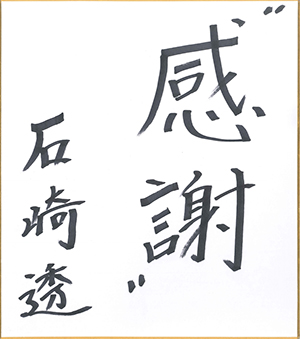 〝感謝〟
石崎透